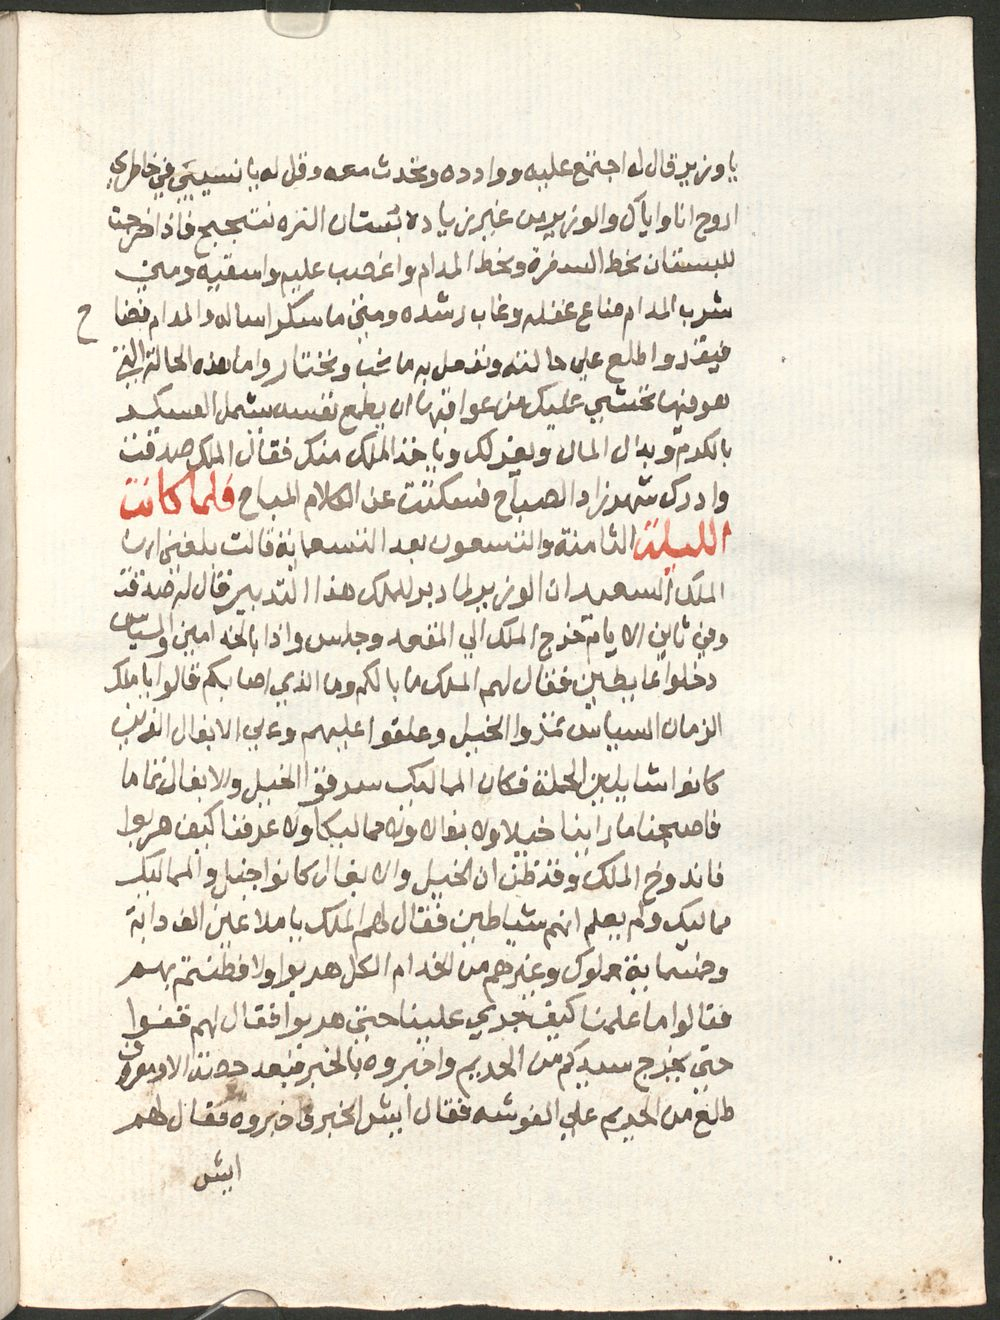 يا وزير قال له اجتمع عليه ووادده وتحدث معه وقل له يا نسيبي في خاطري
اروح انا واياك والوزير من غير زياده لبستان النزه نتبجبج فاذا خرجت
للبستان نحط السفرة ونحط المدام واغصب عليه واسقيه ومتي
شرب المدام ضاع عقله وغاب رشده ومتي ما سكر اساله والمدام فضاح
فيقر واطلع علي حالته ونفعل به ما نحب ونختار واما هذه الحالة التي
هو فيها نخشي عليك من عواقبها ان يطمع نفسه يشمل العسكر
بالكرم وبدال المال ويعزلك وياخذ الملك منك فقال الملك صدقت
وادرك شهرزاد الصباح فسكتت عن الكلام المباح فلما كانت
الليلة الثامنة والتسعون بعد التسعماية قالت بلغني ايها
الملك السعيد ان الوزير لما دبر للملك هذا التدبير قال له صدقت
وفي ثاني الايام خرج الملك الي المقعد وجلس واذا بالخدامين والسياس
دخلوا عايطين فقال لهم الملك ما بالكم وما الذي اصابكم قالوا يا ملك
الزمان السياس تمروا الخيل وعلقوا عليهم وعلي الابغال الذين
كانوا شايلين الحملة فكان المماليك سرقوا الخيل والابغال تماما
فاصبحنا ما راينا خيلا ولا بغالا ولا مماليكا ولا عرفنا كيف هربوا
فاندوخ الملك وقد ظن ان الخيل والابغال كانوا خيل والمماليك
مماليك ولم يعلم انهم شياطين فقال لهم الملك يا ملاعين الف دابة
وخمسماية مملوك وغيرهم من الخدام الكل هربوا ولا فطنتم بهم
فقالوا ما علمنا كيف جري علينا حتي هربوا فقال لهم قفوا
حتي يخرج سيدكم من الحريم واخبروه بالخبر فبعد حصة الا ومعروف
طالع من الحريم علي الفوشه فقال ايش الخبر فاخبروه فقال لهم
ايش